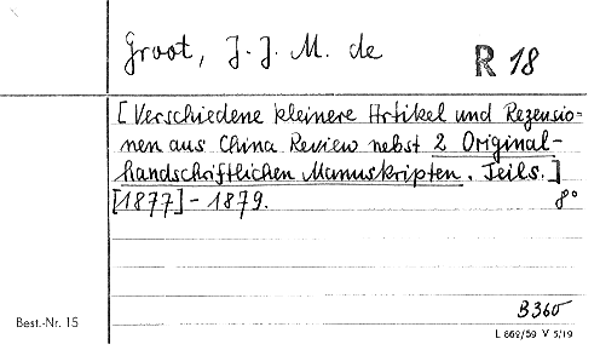 Groot, J. J. M. de
R 18
[Verschiedene kleinere Artikel und Rezensio=
nen aus China Review nebst 2 Original-
handschriftlichen Manuskripten. Teils.]
[1877] - 1879. 8°
B 360
Best.-Nr. 15
L 862/59 V 5/19